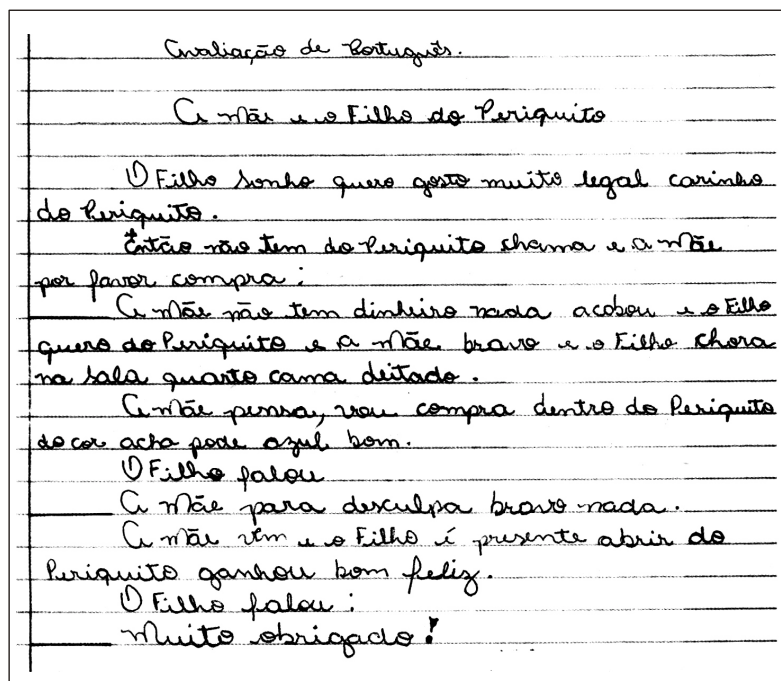 Avaliação de Português.
A mãe e o Filho do Periquito
O Filho sonho quero gosto muito legal carinho
do Periquito.
Então não tem do Periquito chama e a mãe
por favor compra:
A mãe não tem dinheiro nada acobou e o Filho
quero do Periquito e a mãe bravo e o Filho chora
na sala quarto cama deitado.
A mãe pensa, vou compra dentro do Periquito
do cor acha pode azul bom.
O Filho falou
A mãe para desculpa bravo nada.
A mãe vêm e o Filho é presente abrir do
Periquito ganhou bom feliz.
O Filho falou:
Muito obrigado!